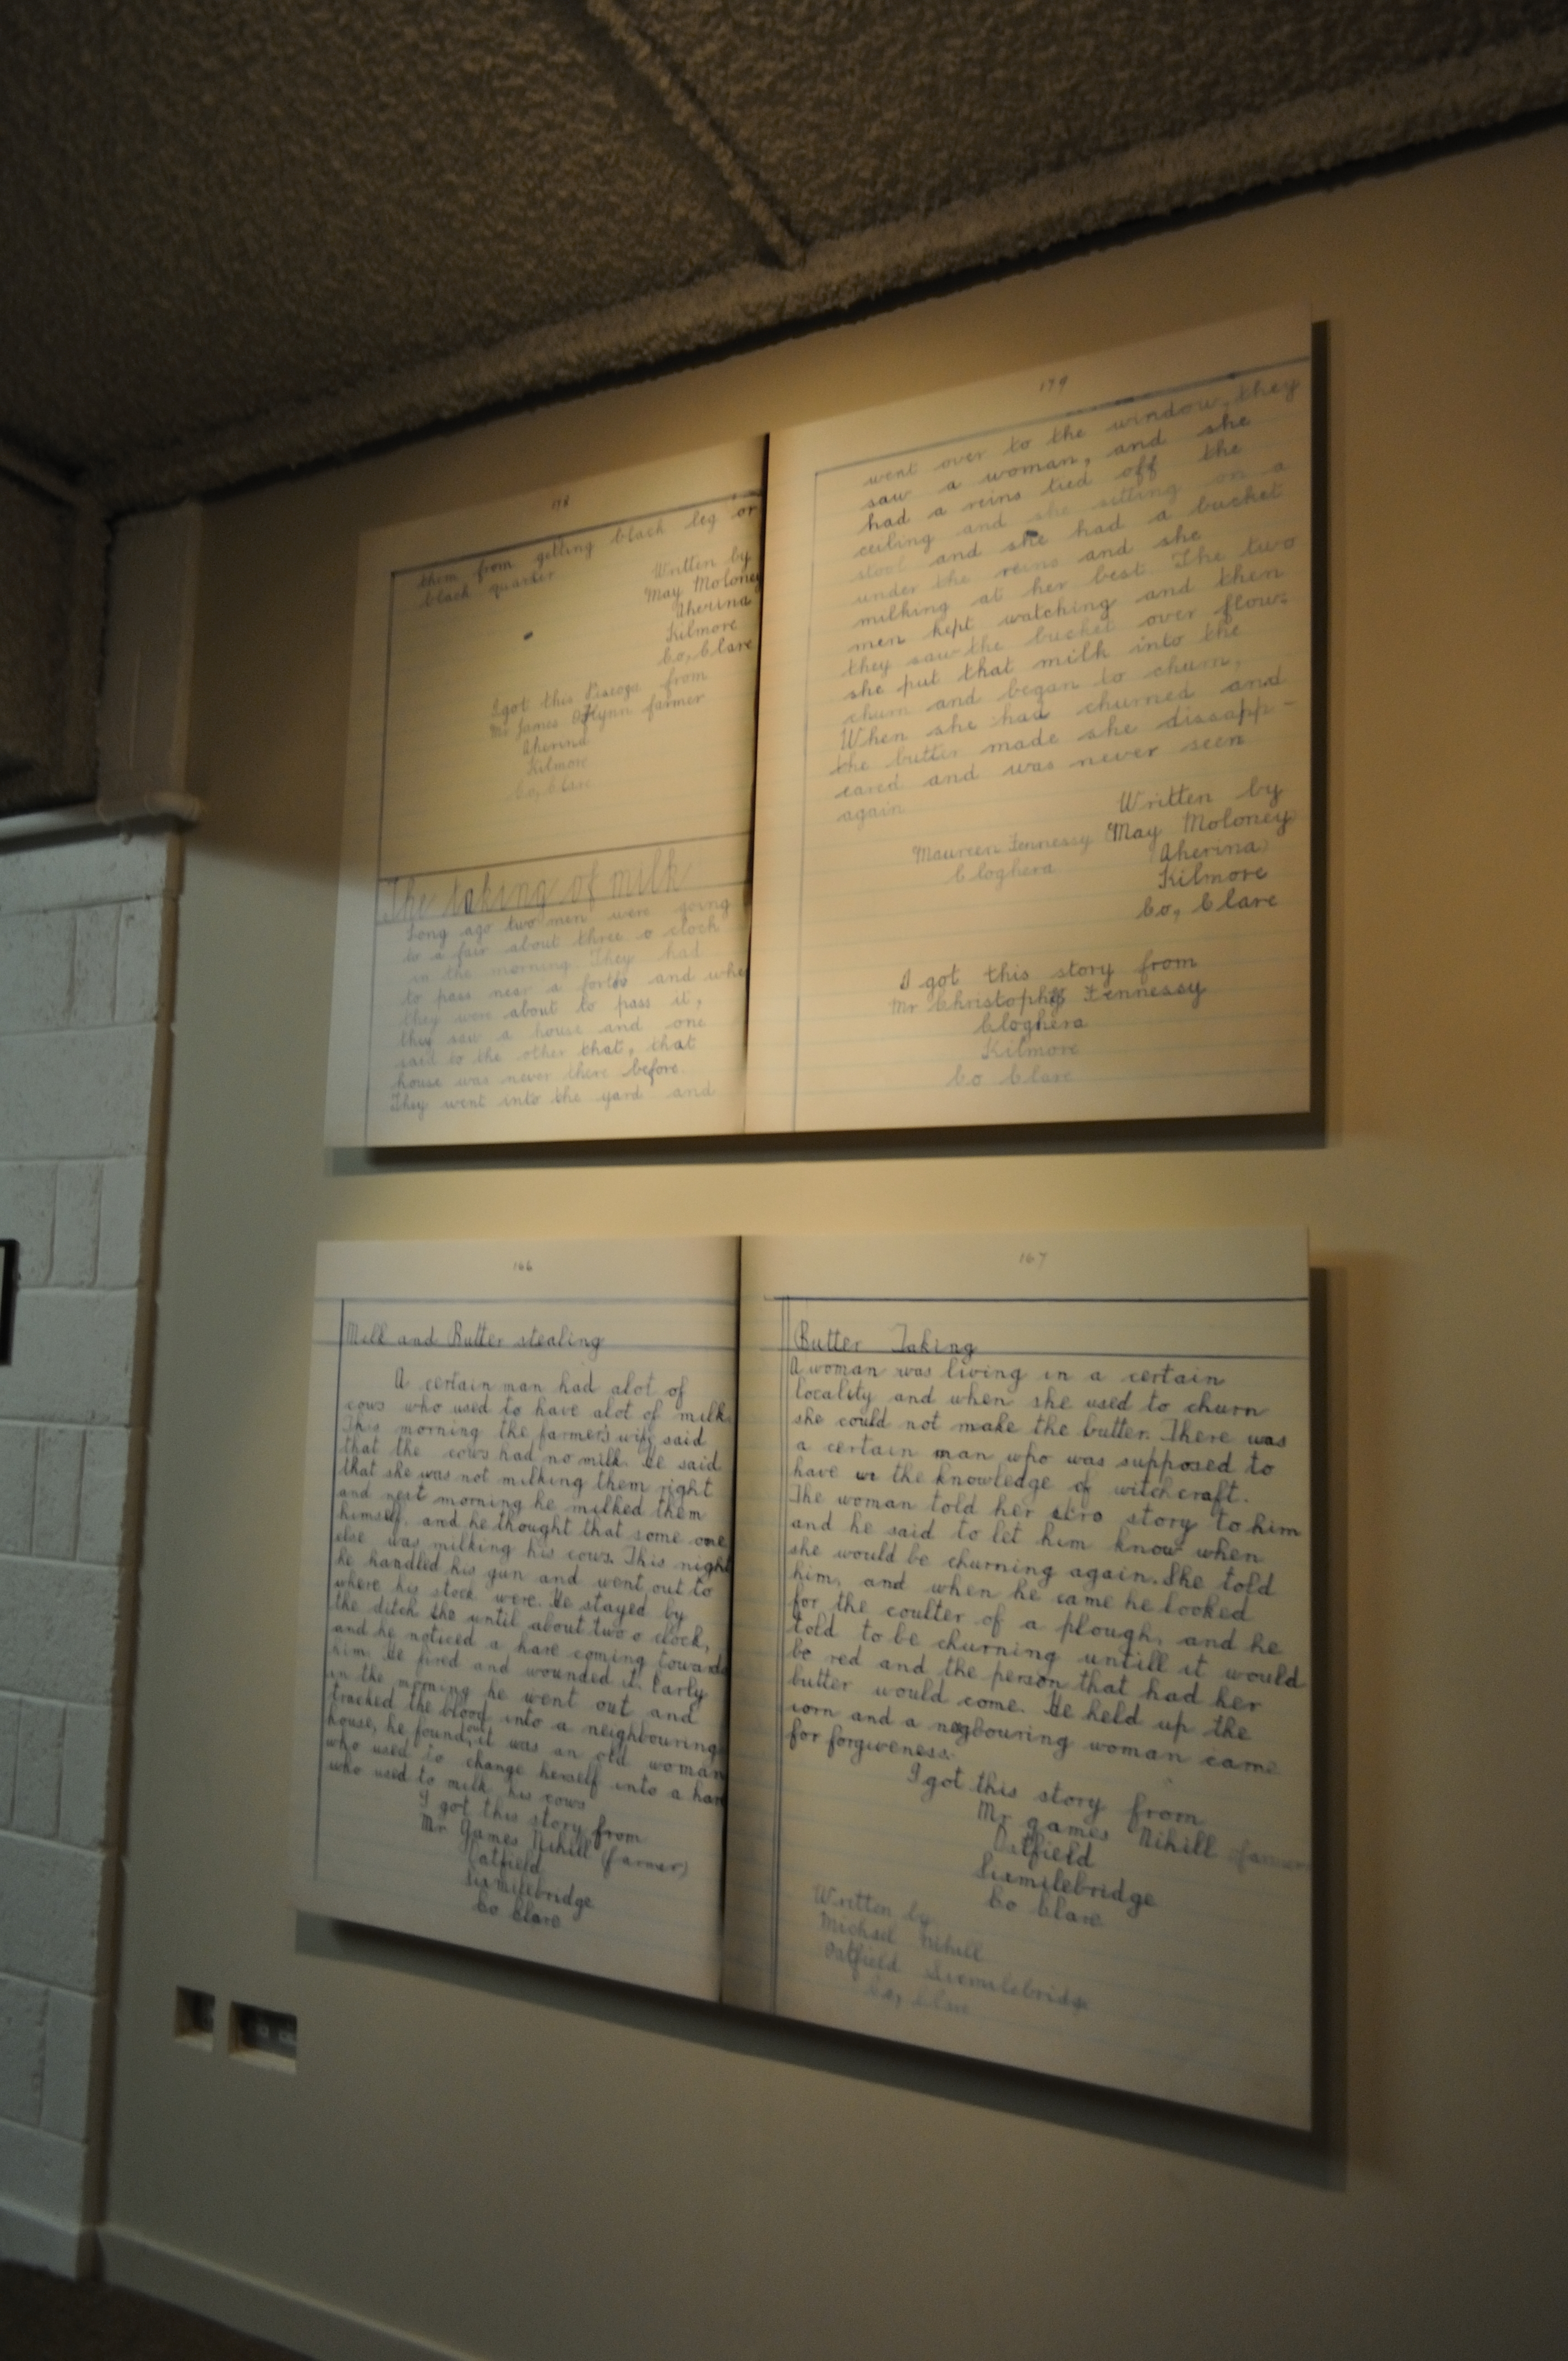 178
them from getting black leg or
black quarter
Written by
May Moloney
Aherina
Kilmore
Co, Clare
I got this Piseoga from
Mr James O'Flynn farmer
Aherina
Kilmore
Co, Clare
The taking of milk
Long ago two men were going
to a fair about three o clock
in the morning. They had
to pass near a forth and when
they were about to pass it,
they saw a house and one
said to the other that, that
house was never there before.
They went into the yard and
179
went over to the window, they
saw a woman, and she
had a reins tied off the
ceiling and she sitting on a
stool and she had a bucket
under the reins and she
milking at her best. The two
men kept watching and then
they saw the bucket over flow.
she put that milk into the
churn and began to churn,
When she had churned and
the butter made she dissapp-
eared and was never seen
again
Written by
Maureen Fennessy May Moloney
Cloghera Aherina
Kilmore
Co, Clare
I got this story from
Mr Christopher Fennessy
Cloghera
Kilmore
Co Clare
166
Milk and Butter stealing
A certain man had alot of
cows who used to have alot of milk.
This morning the farmer's wife said
that the cows had no milk. He said
that she was not milking them right
and next morning he milked them
himself, and he thought that some one
else was milking his cows. This night
he handled his gun and went out to
where his stock were. He stayed by
the ditch until about two o clock,
and he noticed a hare coming towards
him. He fired and wounded it. Early
in the morning he went out and
tracked the blood into a neighbouring
house, he found out it was an old woman
who used to change herself into a hare
who used to milk his cows
I got this story from
Mr James Nihill (farmer)
Oatfield
Sixmilebridge
Co Clare
167
Butter Taking
A woman was living in a certain
locality and when she used to churn
she could not make the butter. There was
a certain man who was supposed to
have the knowledge of witchcraft.
The woman told her story to him
and he said to let him know when
she would be churning again. She told
him, and when he came he looked
for the coulter of a plough, and he
told to be churning untill it would
be red and the person that had her
butter would come. He held up the
iorn and a negbouring woman came
for forgiveness.
I got this story from
Mr James Nihill (farmer)
Oatfield
Sixmilebridge
Co Clare
Written by
Michael Nihill
Oatfield Sixmilebridge
Co, Clare